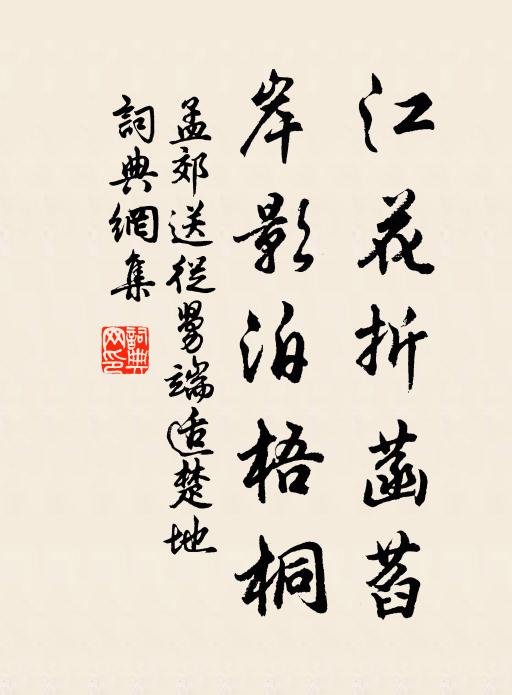 江花折菡萏
岸影泊梧桐
孟郊送從舅端適楚地
詞典網集
詞典网印